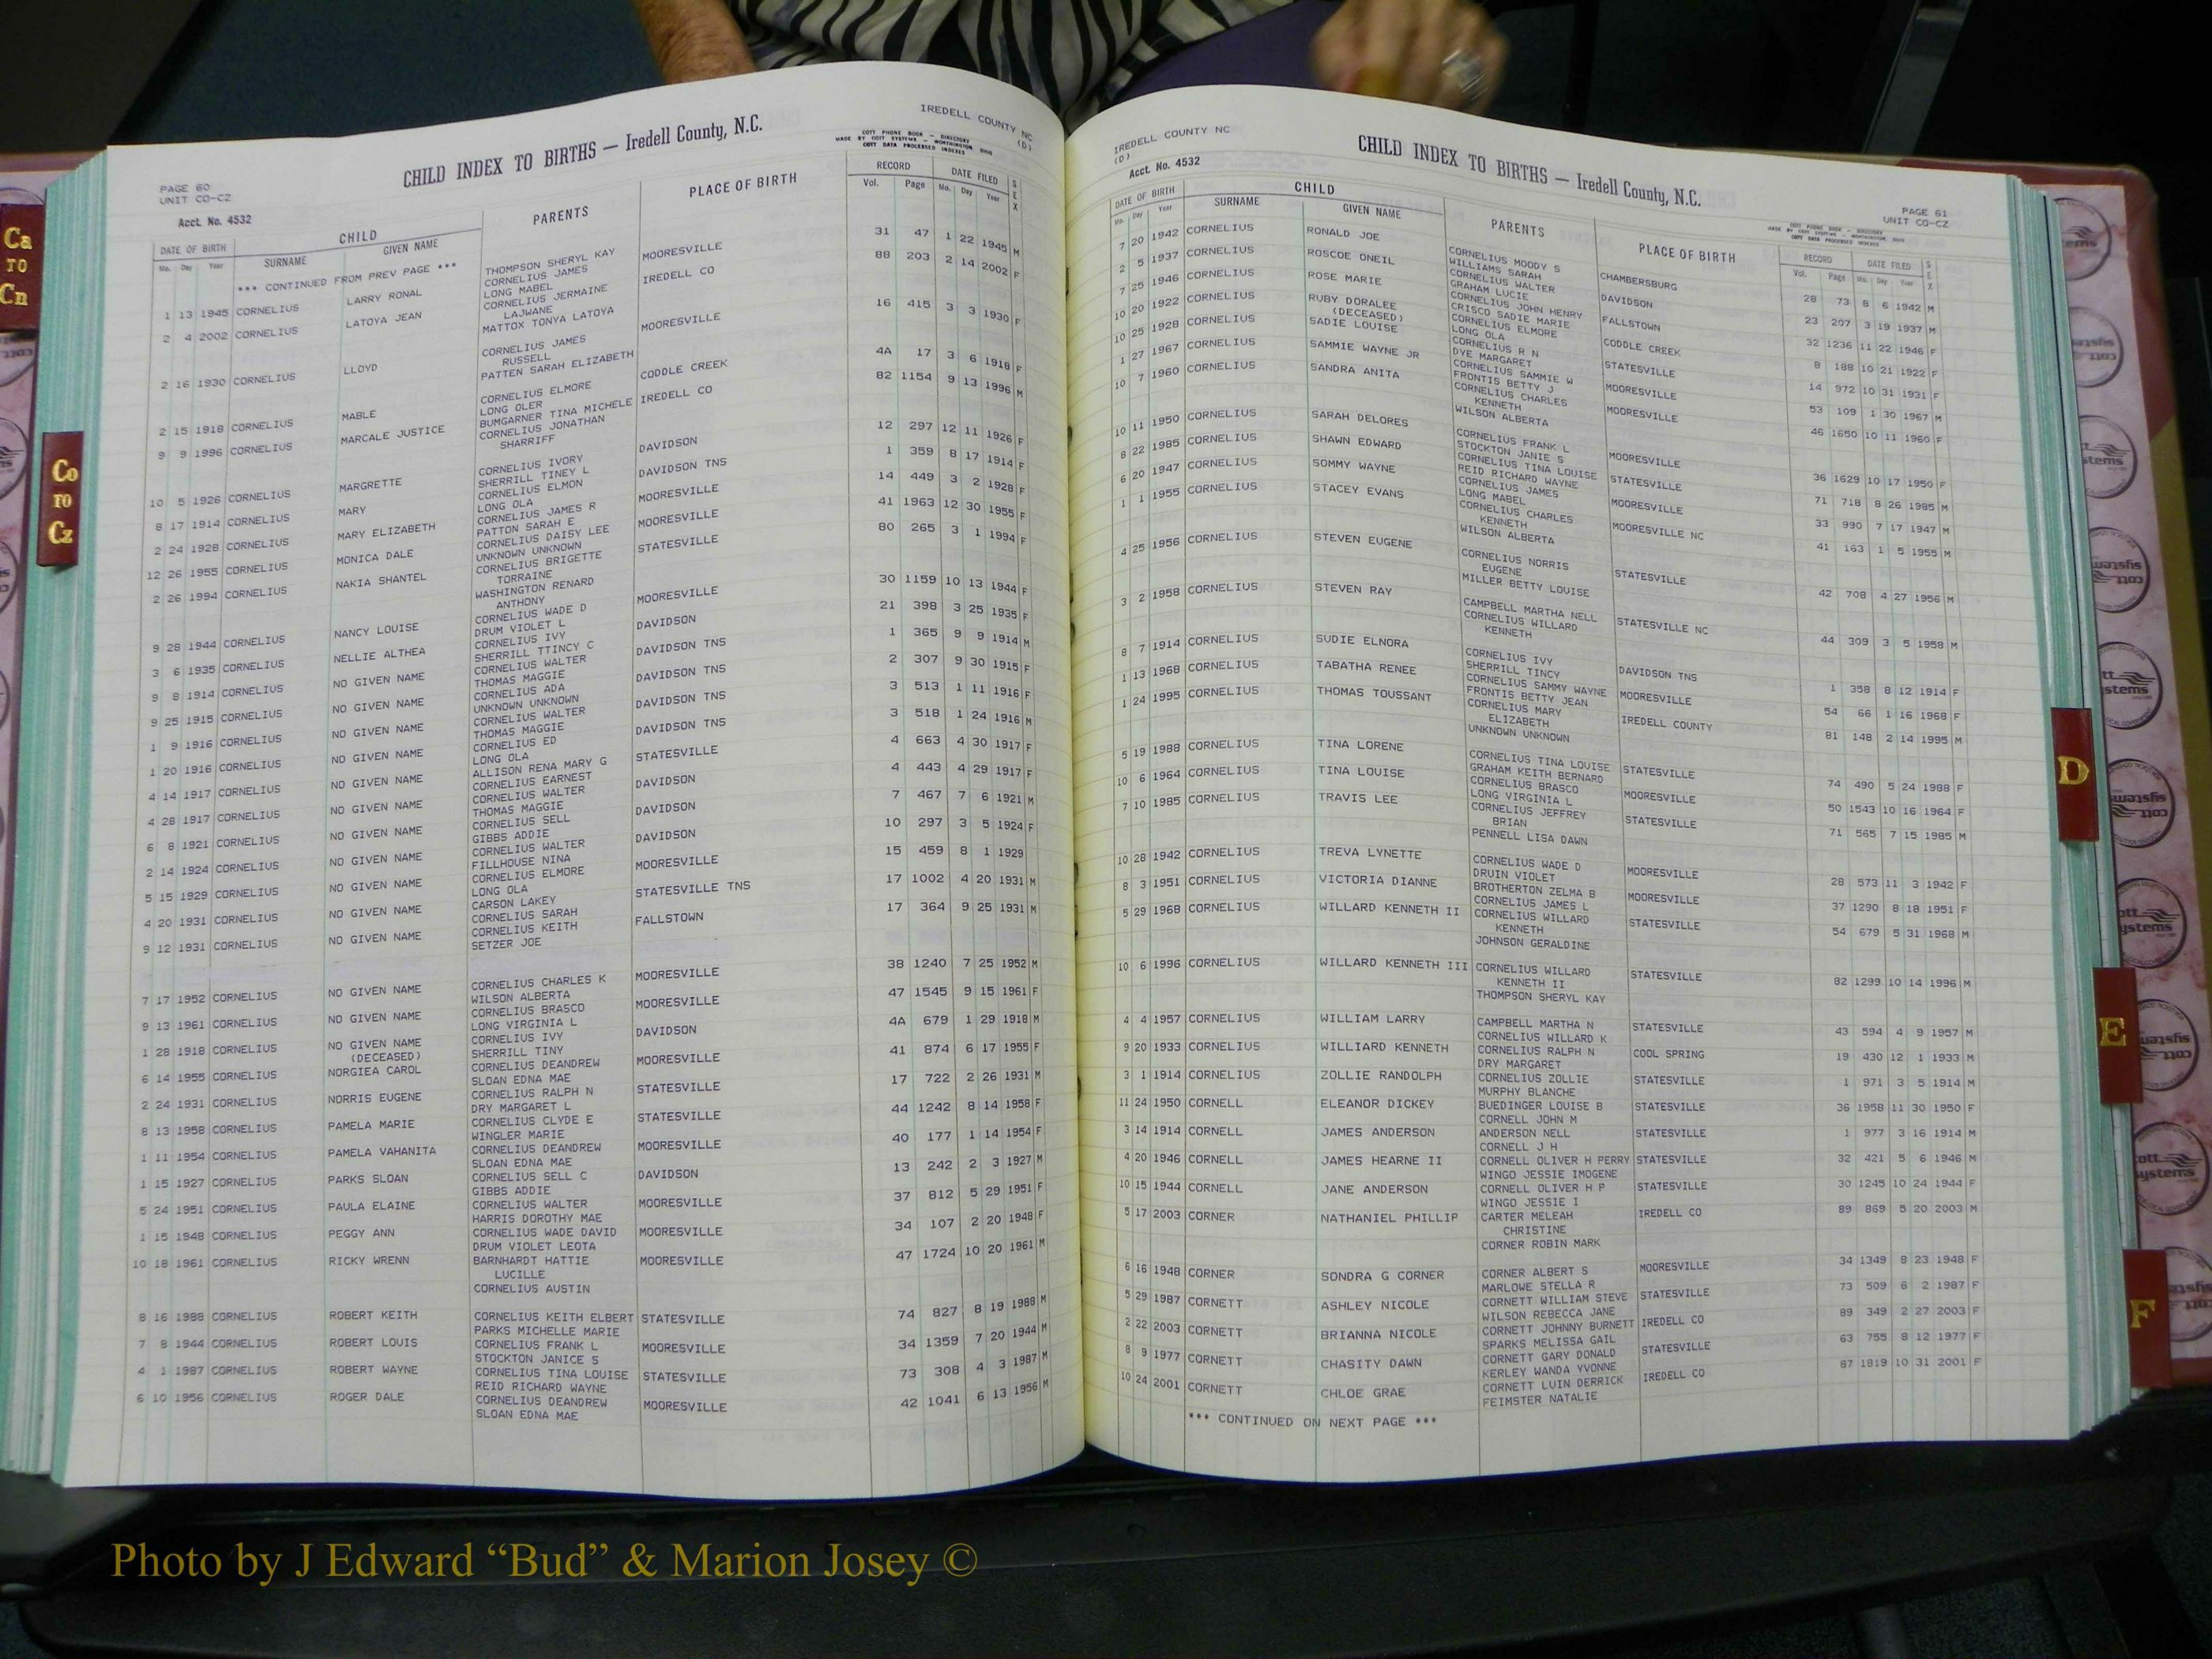 IREDELL COUNTY NC
(D)
CHILD INDEX TO BIRTHS — Iredell County, N.C.
COTT PHONE BOOK — DIRECTORY
MADE BY COTT SYSTEMS — WORTHINGTON, OHIO
COTT DATA PROCESSED INDEXES
PAGE 60
UNIT CO-CZ
Acct. No. 4532
DATE OF BIRTH CHILD PARENTS PLACE OF BIRTH RECORD DATE FILED SEX
Mo. Day Year SURNAME GIVEN NAME Vol. Page Mo. Day Year
*** CONTINUED FROM PREV PAGE ***
THOMPSON SHERYL KAY
1 13 1945 CORNELIUS LARRY RONAL CORNELIUS JAMES MOORESVILLE 31 47 1 22 1945 M
LONG MABEL
2 4 2002 CORNELIUS LATOYA JEAN CORNELIUS JERMAINE IREDELL CO 88 203 2 14 2002 F
LAJWANE
MATTOX TONYA LATOYA
2 16 1930 CORNELIUS LLOYD CORNELIUS JAMES MOORESVILLE 16 415 3 3 1930 F
RUSSELL
PATTEN SARAH ELIZABETH
2 15 1918 CORNELIUS MABLE CORNELIUS ELMORE CODDLE CREEK 4A 17 3 6 1918 F
LONG OLER
9 9 1996 CORNELIUS MARCALE JUSTICE BUMGARNER TINA MICHELE IREDELL CO 82 1154 9 13 1996 M
CORNELIUS JONATHAN
SHARRIFF
10 5 1926 CORNELIUS MARGRETTE CORNELIUS IVORY DAVIDSON 12 297 12 11 1926 F
SHERRILL TINEY L
8 17 1914 CORNELIUS MARY CORNELIUS ELMON DAVIDSON TNS 1 359 8 17 1914 F
LONG OLA
2 24 1928 CORNELIUS MARY ELIZABETH CORNELIUS JAMES R MOORESVILLE 14 449 3 2 1928 F
PATTON SARAH E
12 26 1955 CORNELIUS MONICA DALE CORNELIUS DAISY LEE MOORESVILLE 41 1963 12 30 1955 F
UNKNOWN UNKNOWN
2 26 1994 CORNELIUS NAKIA SHANTEL CORNELIUS BRIGETTE STATESVILLE 80 265 3 1 1994 F
TORRAINE
WASHINGTON RENARD
ANTHONY
9 28 1944 CORNELIUS NANCY LOUISE CORNELIUS WADE D MOORESVILLE 30 1159 10 13 1944 F
DRUM VIOLET L
3 6 1935 CORNELIUS NELLIE ALTHEA CORNELIUS IVY DAVIDSON 21 398 3 25 1935 F
SHERRILL TTINCY C
9 8 1914 CORNELIUS NO GIVEN NAME CORNELIUS WALTER DAVIDSON TNS 1 365 9 9 1914 M
THOMAS MAGGIE
9 25 1915 CORNELIUS NO GIVEN NAME CORNELIUS ADA DAVIDSON TNS 2 307 9 30 1915 F
UNKNOWN UNKNOWN
1 9 1916 CORNELIUS NO GIVEN NAME CORNELIUS WALTER DAVIDSON TNS 3 513 1 11 1916 F
THOMAS MAGGIE
1 20 1916 CORNELIUS NO GIVEN NAME CORNELIUS ED DAVIDSON TNS 3 518 1 24 1916 M
LONG OLA
4 14 1917 CORNELIUS NO GIVEN NAME ALLISON RENA MARY G STATESVILLE 4 663 4 30 1917 F
CORNELIUS EARNEST
4 28 1917 CORNELIUS NO GIVEN NAME CORNELIUS WALTER DAVIDSON 4 443 4 29 1917 F
THOMAS MAGGIE
6 8 1921 CORNELIUS NO GIVEN NAME CORNELIUS SELL DAVIDSON 7 467 7 6 1921 M
GIBBS ADDIE
2 14 1924 CORNELIUS NO GIVEN NAME CORNELIUS WALTER DAVIDSON 10 297 3 5 1924 F
FILLHOUSE NINA
5 15 1929 CORNELIUS NO GIVEN NAME CORNELIUS ELMORE MOORESVILLE 15 459 8 1 1929
LONG OLA
4 20 1931 CORNELIUS NO GIVEN NAME CARSON LAKEY STATESVILLE TNS 17 1002 4 20 1931 M
CORNELIUS SARAH
9 12 1931 CORNELIUS NO GIVEN NAME CORNELIUS KEITH FALLSTOWN 17 364 9 25 1931 M
SETZER JOE
7 17 1952 CORNELIUS NO GIVEN NAME CORNELIUS CHARLES K MOORESVILLE 38 1240 7 25 1952 M
WILSON ALBERTA
9 13 1961 CORNELIUS NO GIVEN NAME CORNELIUS BRASCO MOORESVILLE 47 1545 9 15 1961 F
LONG VIRGINIA L
1 28 1918 CORNELIUS NO GIVEN NAME CORNELIUS IVY DAVIDSON 4A 679 1 29 1918 M
(DECEASED) SHERRILL TINY
6 14 1955 CORNELIUS NORGIEA CAROL CORNELIUS DEANDREW MOORESVILLE 41 874 6 17 1955 F
SLOAN EDNA MAE
2 24 1931 CORNELIUS NORRIS EUGENE CORNELIUS RALPH N STATESVILLE 17 722 2 26 1931 M
DRY MARGARET L
8 13 1958 CORNELIUS PAMELA MARIE CORNELIUS CLYDE E STATESVILLE 44 1242 8 14 1958 F
WINGLER MARIE
1 11 1954 CORNELIUS PAMELA VAHANITA CORNELIUS DEANDREW MOORESVILLE 40 177 1 14 1954 F
SLOAN EDNA MAE
1 15 1927 CORNELIUS PARKS SLOAN CORNELIUS SELL C DAVIDSON 13 242 2 3 1927 M
GIBBS ADDIE
5 24 1951 CORNELIUS PAULA ELAINE CORNELIUS WALTER MOORESVILLE 37 812 5 29 1951 F
HARRIS DOROTHY MAE
1 15 1948 CORNELIUS PEGGY ANN CORNELIUS WADE DAVID MOORESVILLE 34 107 2 20 1948 F
DRUM VIOLET LEOTA
10 18 1961 CORNELIUS RICKY WRENN BARNHARDT HATTIE MOORESVILLE 47 1724 10 20 1961 M
LUCILLE
CORNELIUS AUSTIN
8 16 1988 CORNELIUS ROBERT KEITH CORNELIUS KEITH ELBERT STATESVILLE 74 827 8 19 1988 M
PARKS MICHELLE MARIE
7 8 1944 CORNELIUS ROBERT LOUIS CORNELIUS FRANK L MOORESVILLE 34 1359 7 20 1944 M
STOCKTON JANICE S
4 1 1987 CORNELIUS ROBERT WAYNE CORNELIUS TINA LOUISE STATESVILLE 73 308 4 3 1987 M
REID RICHARD WAYNE
6 10 1956 CORNELIUS ROGER DALE CORNELIUS DEANDREW MOORESVILLE 42 1041 6 13 1956 M
SLOAN EDNA MAE
IREDELL COUNTY NC
(D)
Acct. No. 4532
CHILD INDEX TO BIRTHS — Iredell County, N.C.
PAGE 61
UNIT CO-CZ
COTT PHONE BOOK — DIRECTORY
MADE BY COTT SYSTEMS — WORTHINGTON, OHIO
COTT DATA PROCESSED INDEXES
DATE OF BIRTH CHILD PARENTS PLACE OF BIRTH RECORD DATE FILED SEX
Mo. Day Year SURNAME GIVEN NAME Vol. Page Mo. Day Year
7 20 1942 CORNELIUS RONALD JOE CORNELIUS MOODY S CHAMBERSBURG 28 73 8 6 1942 M
WILLIAMS SARAH
2 5 1937 CORNELIUS ROSCOE ONEIL CORNELIUS WALTER DAVIDSON 23 207 3 19 1937 M
GRAHAM LUCIE
7 25 1946 CORNELIUS ROSE MARIE CORNELIUS JOHN HENRY FALLSTOWN 32 1236 11 22 1946 F
CRISCO SADIE MARIE
10 20 1922 CORNELIUS RUBY DORALEE CORNELIUS ELMORE CODDLE CREEK 8 188 10 21 1922 F
(DECEASED) LONG OLA
10 25 1928 CORNELIUS SADIE LOUISE CORNELIUS R N STATESVILLE 14 972 10 31 1931 F
DYE MARGARET
1 27 1967 CORNELIUS SAMMIE WAYNE JR CORNELIUS SAMMIE W MOORESVILLE 53 109 1 30 1967 M
FRONTIS BETTY J
10 7 1960 CORNELIUS SANDRA ANITA CORNELIUS CHARLES MOORESVILLE 46 1650 10 11 1960 F
KENNETH
WILSON ALBERTA
10 11 1950 CORNELIUS SARAH DELORES CORNELIUS FRANK L MOORESVILLE 36 1629 10 17 1950 F
STOCKTON JANIE S
8 22 1985 CORNELIUS SHAWN EDWARD CORNELIUS TINA LOUISE STATESVILLE 71 718 8 26 1985 M
REID RICHARD WAYNE
6 20 1947 CORNELIUS SOMMY WAYNE CORNELIUS JAMES MOORESVILLE 33 990 7 17 1947 M
LONG MABEL
1 1 1955 CORNELIUS STACEY EVANS CORNELIUS CHARLES MOORESVILLE NC 41 163 1 5 1955 M
KENNETH
WILSON ALBERTA
4 25 1956 CORNELIUS STEVEN EUGENE CORNELIUS NORRIS STATESVILLE 42 708 4 27 1956 M
EUGENE
MILLER BETTY LOUISE
3 2 1958 CORNELIUS STEVEN RAY CAMPBELL MARTHA NELL STATESVILLE NC 44 309 3 5 1958 M
CORNELIUS WILLARD
KENNETH
8 7 1914 CORNELIUS SUDIE ELNORA CORNELIUS IVY DAVIDSON TNS 1 358 8 12 1914 F
SHERRILL TINCY
1 13 1968 CORNELIUS TABATHA RENEE CORNELIUS SAMMY WAYNE MOORESVILLE 54 66 1 16 1968 F
FRONTIS BETTY JEAN
1 24 1995 CORNELIUS THOMAS TOUSSANT CORNELIUS MARY IREDELL COUNTY 81 148 2 14 1995 M
ELIZABETH
UNKNOWN UNKNOWN
5 19 1988 CORNELIUS TINA LORENE CORNELIUS TINA LOUISE STATESVILLE 74 490 5 24 1988 F
GRAHAM KEITH BERNARD
10 6 1964 CORNELIUS TINA LOUISE CORNELIUS BRASCO MOORESVILLE 50 1543 10 16 1964 F
LONG VIRGINIA L
7 10 1985 CORNELIUS TRAVIS LEE CORNELIUS JEFFREY STATESVILLE 71 565 7 15 1985 M
BRIAN
PENNELL LISA DAWN
10 28 1942 CORNELIUS TREVA LYNETTE CORNELIUS WADE D MOORESVILLE 28 573 11 3 1942 F
DRUIN VIOLET
8 3 1951 CORNELIUS VICTORIA DIANNE BROTHERTON ZELMA B MOORESVILLE 37 1290 8 18 1951 F
CORNELIUS JAMES L
5 29 1968 CORNELIUS WILLARD KENNETH II CORNELIUS WILLARD STATESVILLE 54 679 5 31 1968 M
KENNETH
JOHNSON GERALDINE
10 6 1996 CORNELIUS WILLARD KENNETH III CORNELIUS WILLARD STATESVILLE 82 1299 10 14 1996 M
KENNETH II
THOMPSON SHERYL KAY
4 4 1957 CORNELIUS WILLIAM LARRY CAMPBELL MARTHA N STATESVILLE 43 594 4 9 1957 M
CORNELIUS WILLARD K
9 20 1933 CORNELIUS WILLIARD KENNETH CORNELIUS RALPH N COOL SPRING 19 430 12 1 1933 M
DRY MARGARET
3 1 1914 CORNELIUS ZOLLIE RANDOLPH CORNELIUS ZOLLIE STATESVILLE 1 971 3 5 1914 M
MURPHY BLANCHE
11 24 1950 CORNELL ELEANOR DICKEY BUEDINGER LOUISE B STATESVILLE 36 1958 11 30 1950 F
CORNELL JOHN M
3 14 1914 CORNELL JAMES ANDERSON ANDERSON NELL STATESVILLE 1 977 3 16 1914 M
CORNELL J H
4 20 1946 CORNELL JAMES HEARNE II CORNELL OLIVER H PERRY STATESVILLE 32 421 5 6 1946 M
WINGO JESSIE IMOGENE
10 15 1944 CORNELL JANE ANDERSON CORNELL OLIVER H P STATESVILLE 30 1245 10 24 1944 F
WINGO JESSIE I
5 17 2003 CORNER NATHANIEL PHILLIP CARTER MELEAH IREDELL CO 89 869 5 20 2003 M
CHRISTINE
CORNER ROBIN MARK
6 16 1948 CORNER SONDRA G CORNER CORNER ALBERT S MOORESVILLE 34 1349 8 23 1948 F
MARLOWE STELLA R
5 29 1987 CORNETT ASHLEY NICOLE CORNETT WILLIAM STEVE STATESVILLE 73 509 6 2 1987 F
WILSON REBECCA JANE
2 22 2003 CORNETT BRIANNA NICOLE CORNETT JOHNNY BURNETT IREDELL CO 89 349 2 27 2003 F
SPARKS MELISSA GAIL
8 9 1977 CORNETT CHASITY DAWN CORNETT GARY DONALD STATESVILLE 63 755 8 12 1977 F
KERLEY WANDA YVONNE
10 24 2001 CORNETT CHLOE GRAE CORNETT LUIN DERRICK IREDELL CO 87 1819 10 31 2001 F
FEIMSTER NATALIE
*** CONTINUED ON NEXT PAGE ***
Ca
TO
Cn
Co
TO
Cz
D
E
F
Photo by J Edward “Bud” & Marion Josey ©